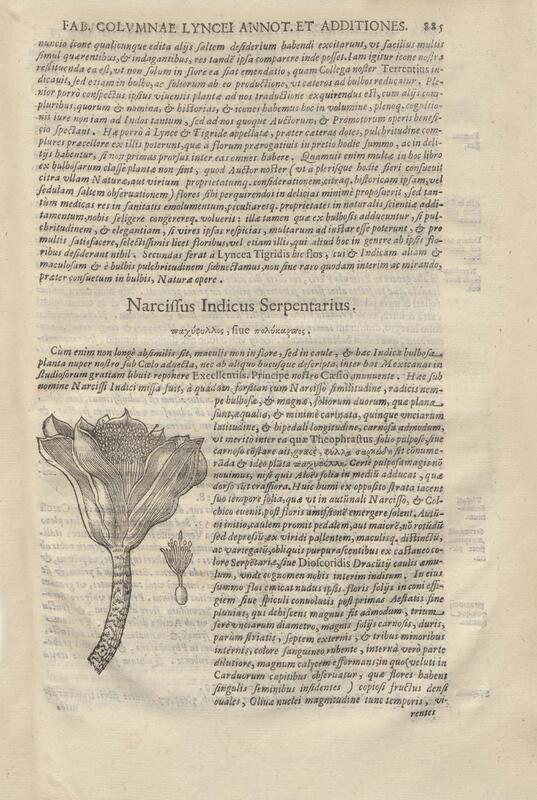 FAB. COLVMNAE LYNCEI ANNOT. ET ADDITIONES. 885
nuncio icone qualicunque edita alijs saltem desiderium habendi excitarunt, vt facilius multis
simul quærentibus, & indagantibus, res tandē ipsa comparere inde posset. Iam igitur icone nostra
restituenda ea est, vt non solum in flore ea fiat emendatio, quam Collega noster Terrentius in-
dicauit, sed etiam in bulbo, ac foliorum ab eo productione, vt cæteros ad bulbos reducatur. Ple-
nior porrò conspectus ipsius viuentis plantæ ad nos traductione exquirendus est, cum alijs com-
pluribus, quorum & nomina, & historias, & icones habemus hoc in volumine, plenæq. cognitio-
nis iure non iam ad Indos tantum, sed ad nos quoque Auctorum, & Promotorum operis benefi-
cio spectant. Hæ porrò à Lynce & Tigride appellatæ, præter cæteras dotes, pulchritudine com-
plures præcellere ex illis poterunt, quæ à florum prærogatiuis in pretio hodie summo, ac in deli-
tijs habentur, si non primas prorsus inter eas omnes habere. Quamuis enim multæ in hoc libro
ex bulbosarum classe plantæ non sint, quod Auctor noster (vt à plerisque hodie fieri consueuit
citra vllam Naturæ, aut virium proprietatumq. considerationem, citraq. historicam ipsam, vel
sedulam saltem obseruationem) flores sibi perquirendos in delicias minimè proposuerit, sed tan-
tùm medicas res in sanitatis emolumentum, peculiaresq. proprietates in naturalis scientiæ addi-
tamentum, nobis seligere congerereq. voluerit: illæ tamen quæ ex bulbosis adducuntur, si pul-
chritudinem, & elegantiam, si vires ipsas respicias, multarum ad instar esse poterunt, & pro
multis satisfacere, selectissimis licet floribus, vel etiam illis, qui aliud hoc in genere ab ipsis flo-
ribus desiderant nihil. Secundas ferat à Lyncea Tigridis hic flos, cui & Indicam aliam &
maculosam & è bulbis pulchritudinem subnectamus, non sine raro quodam interim ac mirando,
præter consuetum in bulbis, Naturæ opere.
Narcissus Indicus Serpentarius.
παχύφυλλος, siue πολύκαρπος.
Cùm enim non longè absimilis sit, maculis non in flore, sed in caule, & hæc Indica bulbosa
planta nuper nostro sub Cœlo aduecta, nec ab aliquo bucusque descripta, inter has Mexicanas in
studiosorum gratiam libuit reponere Excellentiss. Principe nostro Cæsio annuente. Hæc sub
nomine Narcissi Indici missa fuit, à quadam forsitan cum Narcisso similitudine, radicis nem-
pe bulbosæ, & magnæ, foliorum duorum, quæ plana
sunt, æqualia, & minimè carinata, quinque vnciarum
latitudine, & bipedali longitudine, carnosa admodum,
vt meritò inter ea quæ Theophrastus folio pulposo, siue
carnoso constare ait, græcè, φύλλα σαρκώδη sit connume-
rāda & ideo plāta παχύφυλλος. Certè pulposa magis nō
nouimus, nisi quis Aloës folia in mediū adducat, quæ
dorso sūt crassiora. Huic humi ex opposito strata iacent
suo tempore folia, quæ vt in autūnali Narcisso, & Col-
chico euenit, post floris amissionē emergere solent. Autū-
ni initio, caulem promit pedalem, aut maiorē, nō rotūdū
sed depressū, ex viridi pallentem, maculisq. distinctū,
ac variegatū, obliquis purpurascentibus ex castaneo co-
lore Serpētariæ, siue Dioscoridis Dracūtij caulis æmu-
lum, vnde cognomen nobis interim inditum. In eius
summo flos emicat nudus ipsis, floris folijs in coni effi-
giem siue spiculi conuolutis post primas Aestatis fine
pluuias, qui dehiscens magnus fit admodum, trium
ferè vnciarum diametro, magnis folijs carnosis, duris,
parùm striatis, septem externis, & tribus minoribus
internis, colore sanguineo rubente, interna verò parte
dilutiore, magnum calycem efformans; in quo (veluti in
Carduorum capitibus obseruatur, quæ flores habent
singulis seminibus insidentes) copiosi fructus densi
ouales, Oliuæ nuclei magnitudine tunc temporis, vi-
rentes